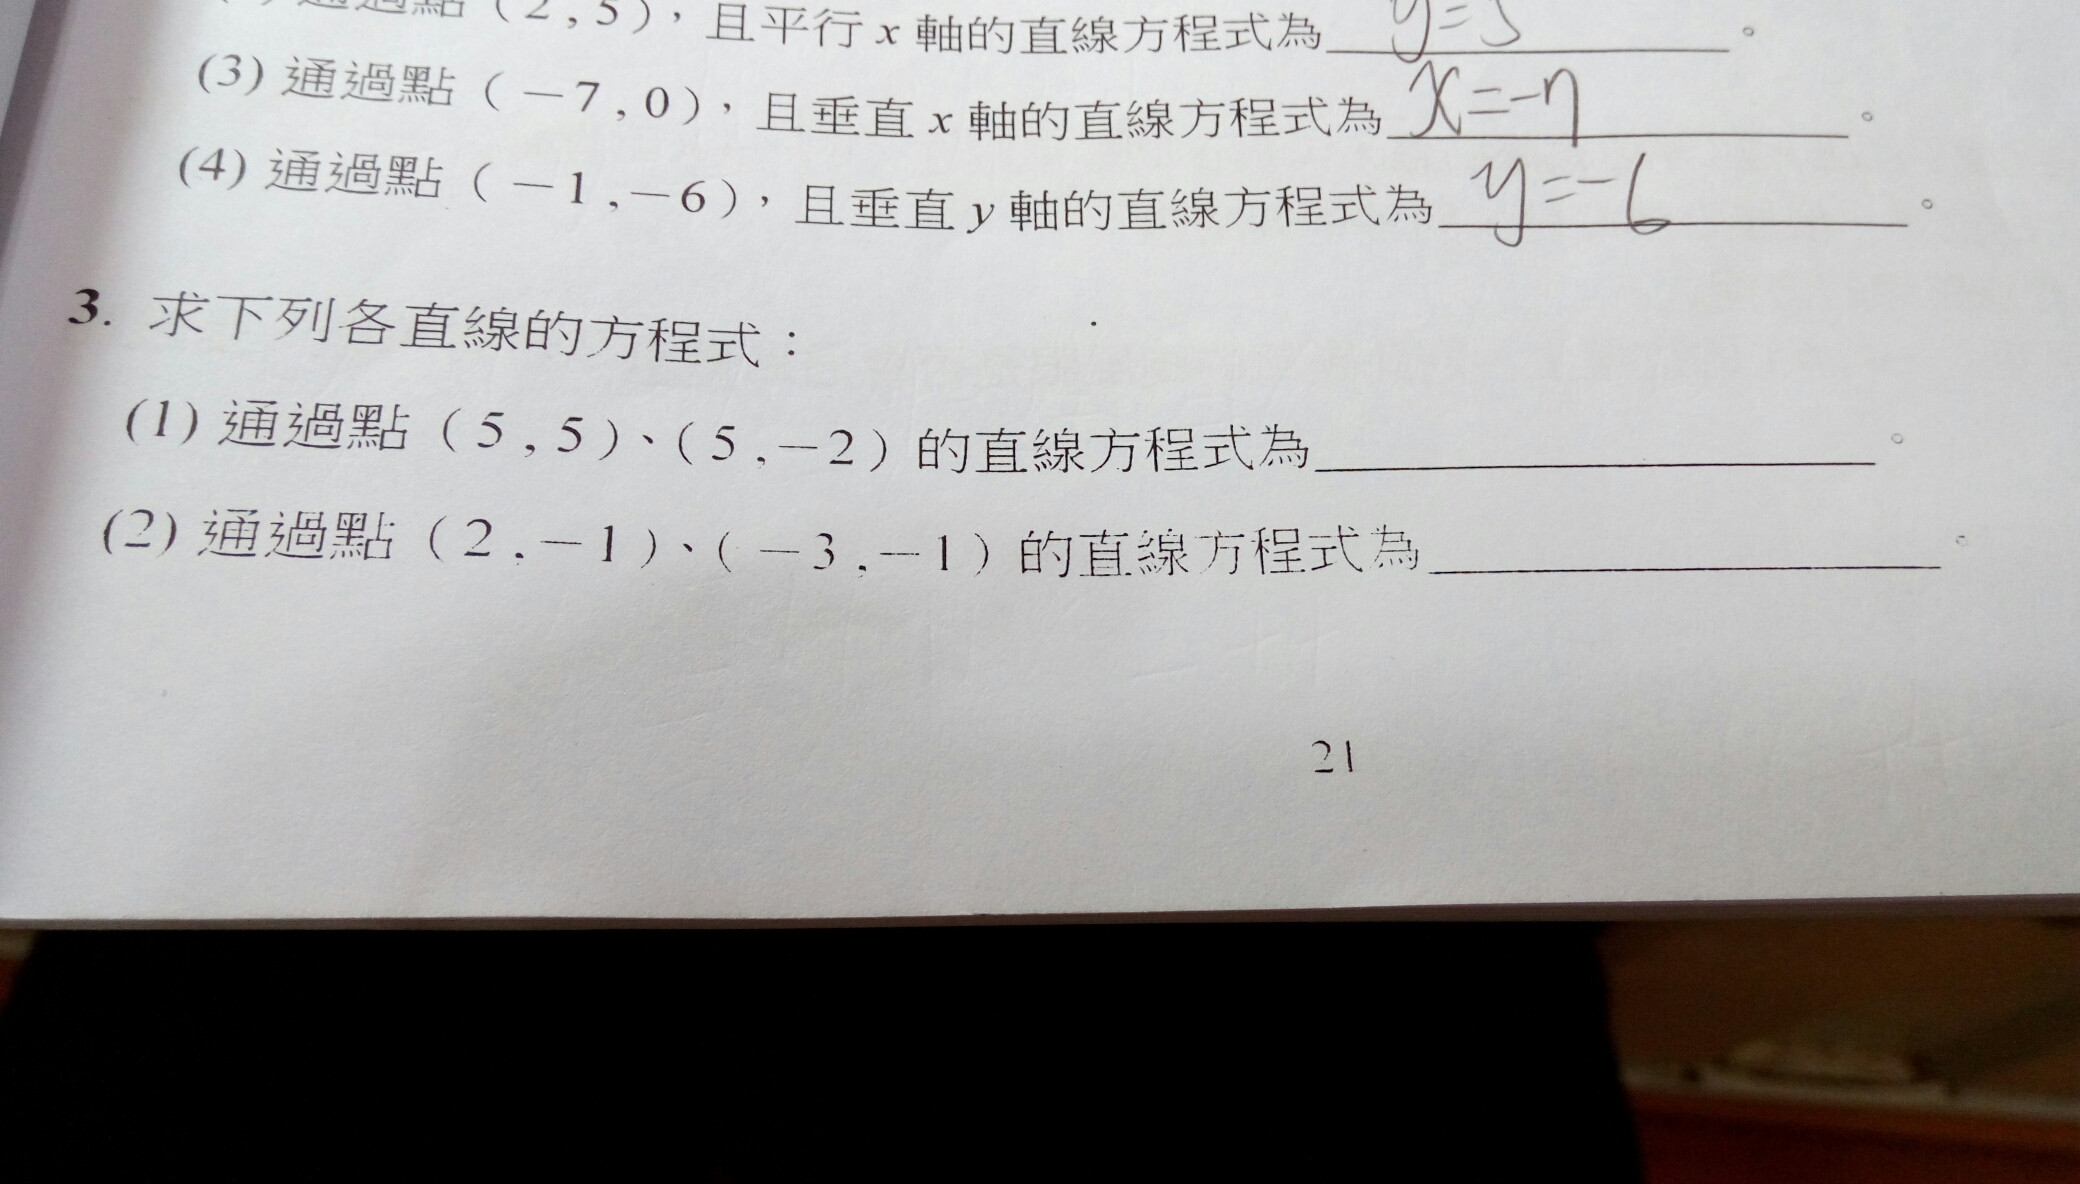 通過點（2,5），且平行 x 軸的直線方程式為 y=5 。
(3) 通過點（－7,0），且垂直 x 軸的直線方程式為 x=-7 。
(4) 通過點（－1,－6），且垂直 y 軸的直線方程式為 y=-6 。
3. 求下列各直線的方程式：
(1) 通過點（5,5）、（5,－2）的直線方程式為＿＿＿＿＿＿。
(2) 通過點（2,－1）、（－3,－1）的直線方程式為＿＿＿＿＿＿。
21